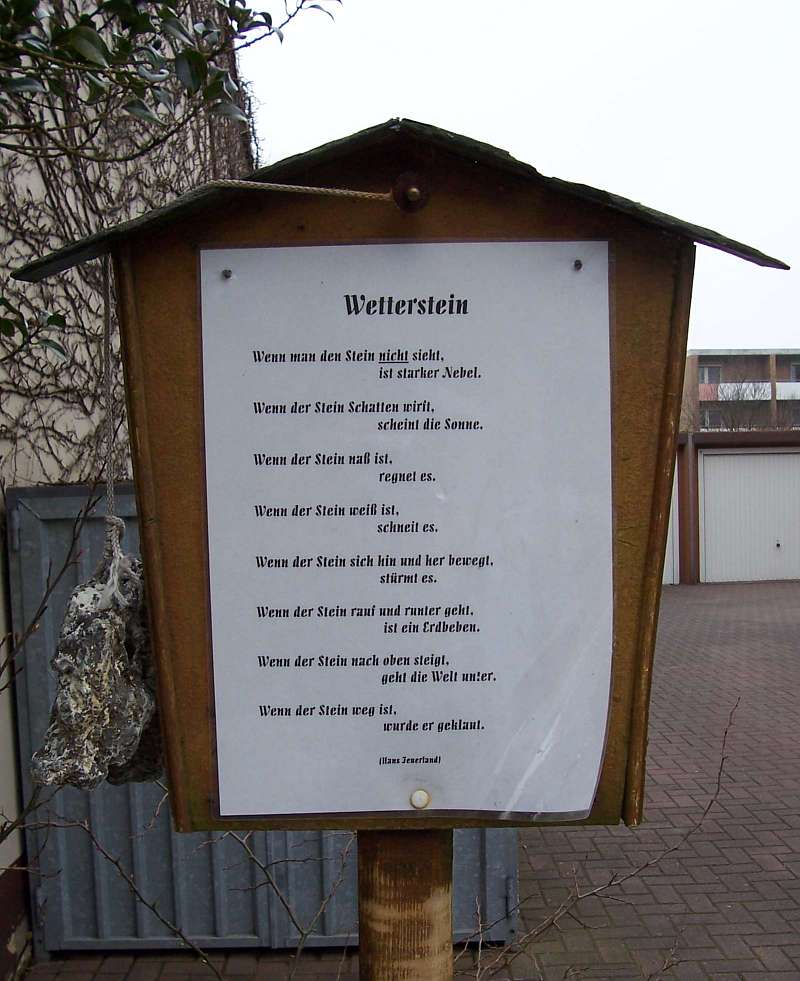 Wetterstein
Wenn man den Stein nicht sieht,
ist starker Nebel.
Wenn der Stein Schatten wirft,
scheint die Sonne.
Wenn der Stein naß ist,
regnet es.
Wenn der Stein weiß ist,
schneit es.
Wenn der Stein sich hin und her bewegt,
stürmt es.
Wenn der Stein rauf und runter geht,
ist ein Erdbeben.
Wenn der Stein nach oben steigt,
geht die Welt unter.
Wenn der Stein weg ist,
wurde er geklaut.
(Hans Jenerland)